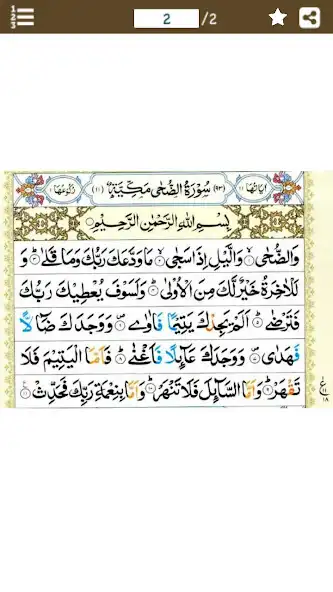 2 /2
اٰیاتها ۱۱ (۹۳) سُوْرَةُ الضُّحٰى مَكِّيَّةٌ (۱۱) رکوعها ۱
بِسْمِ اللّٰهِ الرَّحْمٰنِ الرَّحِيْمِ ۝
وَالضُّحٰى ۝ۙ۱ وَالَّيْلِ اِذَا سَجٰى ۝ۙ۲ مَا وَدَّعَكَ رَبُّكَ وَمَا قَلٰى ۝ؕ۳ وَ
لَلْاٰخِرَةُ خَيْرٌ لَّكَ مِنَ الْاُوْلٰى ۝ؕ۴ وَلَسَوْفَ يُعْطِيْكَ رَبُّكَ
فَتَرْضٰى ۝ؕ۵ اَلَمْ يَجِدْكَ يَتِيْمًا فَاٰوٰى ۝۶ وَوَجَدَكَ ضَآ لًّا
فَهَدٰى ۝۷ وَوَجَدَكَ عَآىِٕلًا فَاَغْنٰى ۝ؕ۸ فَاَمَّا الْيَتِيْمَ فَلَا
تَقْهَرْ ۝ؕ۹ وَاَمَّا السَّآىِٕلَ فَلَا تَنْهَرْ ۝ؕ۱۰ وَاَمَّا بِنِعْمَةِ رَبِّكَ فَحَدِّثْ ۝۱۱
ع
۱۱
۱۸